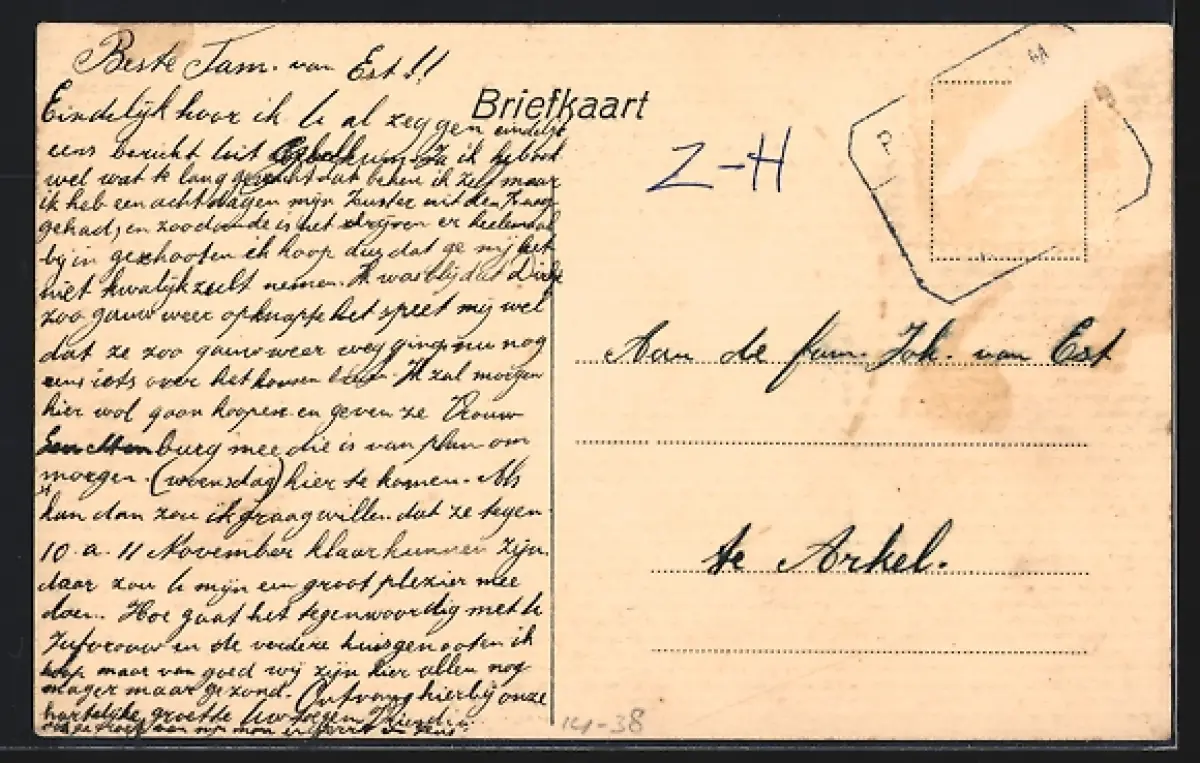 Beste Fam. van Est!!
Eindelijk hoor ik U al zeggen eindelijk
eens bericht uit
wel wat te lang gewacht dat beken ik zelf maar
ik heb een acht dagen mijn Zuster uit den Haag
gehad, en zoodoende is het schrijven er heelemaal
bij in geschooten ik hoop dus dat ge mij het
niet kwalijk zult nemen. Ik was blij dat Dirk
zoo gauw weer opknapte het speet mij wel
dat ze zoo gauw weer weg ging nu nog
eens iets over het kousen Ik zal morgen
hier wol gaan koopen en geven ze Vrouw
burg mee die is van plan om
morgen (woensdag) hier te komen. Als
't kan dan zou ik graag willen dat ze tegen
10 a 11 November klaar kunnen zijn
daar zou U mijn een groot plezier mee
doen. Hoe gaat het tegenwoordig met U
Zufvrouw en de verdere huisgenooten ik
hoop maar van goed wij zijn hier allen nog
mager maar gezond. Ontvang hierbij onze
hartelijke groette Uw toegen Vriendin
Briefkaart
Z-H
Aan de fam. Joh. van Est
te Arkel.
14-38